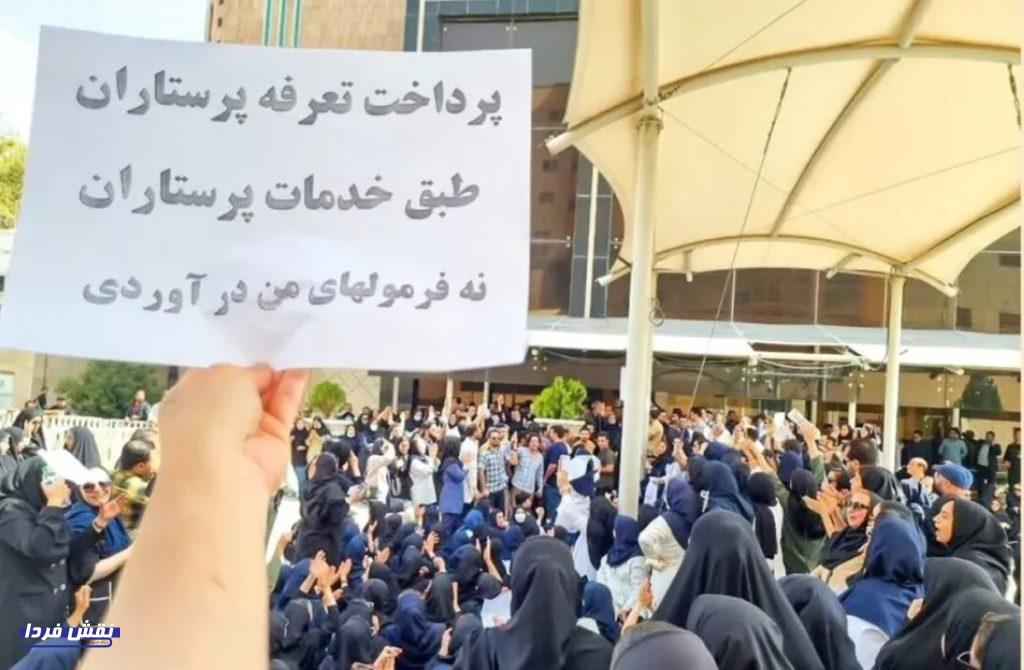 پرداخت تعرفه پرستاران
طبق خدمات پرستاران
نه فرمولهای من در آوردی
نقش فردا